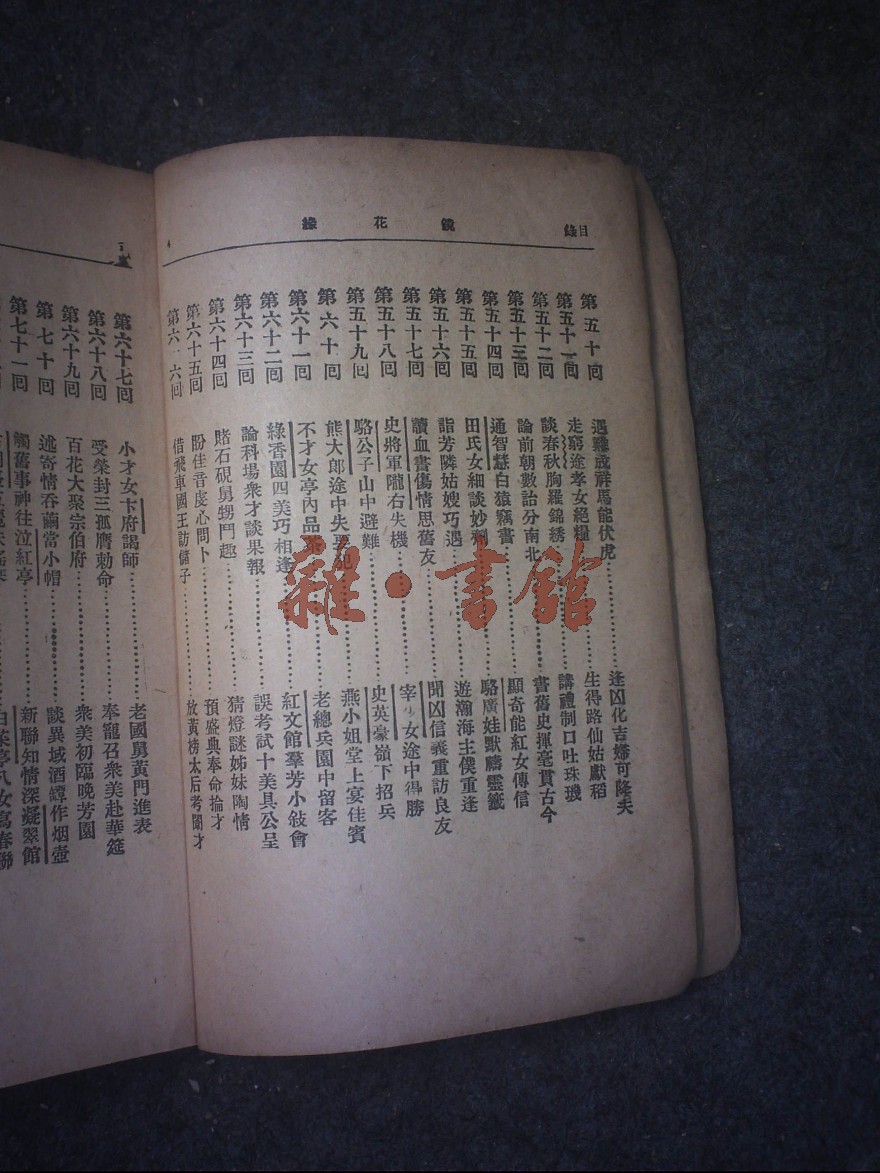 鏡花緣
目錄
第五十回 遇難成祥馬能伏虎……逢凶化吉婦可降夫
第五十一回 走窮途孝女絕糧……生得路仙姑獻稻
第五十二回 談春秋胸羅錦綉……講禮制口吐珠璣
第五十三回 論前朝數語分南北……書舊史揮毫貫古今
第五十四回 通智慧白猿竊書……顯奇能紅女傳信
第五十五回 田氏女細談妙劑……駱廣娃默禱靈籤
第五十六回 詣芳隣姑嫂巧遇……遊瀚海主僕重逢
第五十七回 讀血書傷情思舊友……聞凶信義重訪良友
第五十八回 史將軍隴右失機……宰少女途中得勝
第五十九回 駱公子山中避難……史英豪嶺下招兵
第六十回 熊大郎途中失要犯……燕小姐堂上宴佳賓
第六十一回 不才女亭內品茶……老總兵園中留客
第六十二回 綠香園四美巧相逢……紅文館羣芳小敍會
第六十三回 論科場衆才談果報……誤考試十美具公呈
第六十四回 賭石硯舅甥鬥趣……猜燈謎姊妹陶情
第六十五回 盼佳音虔心問卜……預盛典奉命掄才
第六十六回 借飛車國王訪儲子……放黃榜太后考閨才
第六十七回 小才女卞府謁師……老國舅黃門進表
第六十八回 受榮封三孤膺勅命……奉寵召衆美赴華筵
第六十九回 百花大聚宗伯府……衆美初臨晚芳園
第七十回 述寄情吞繭當小帽……談異域酒罈作烟壺
第七十一回 觸舊事神往泣紅亭……新聯知情深凝翠館
白茱亭八女寫春聯
雜·書館